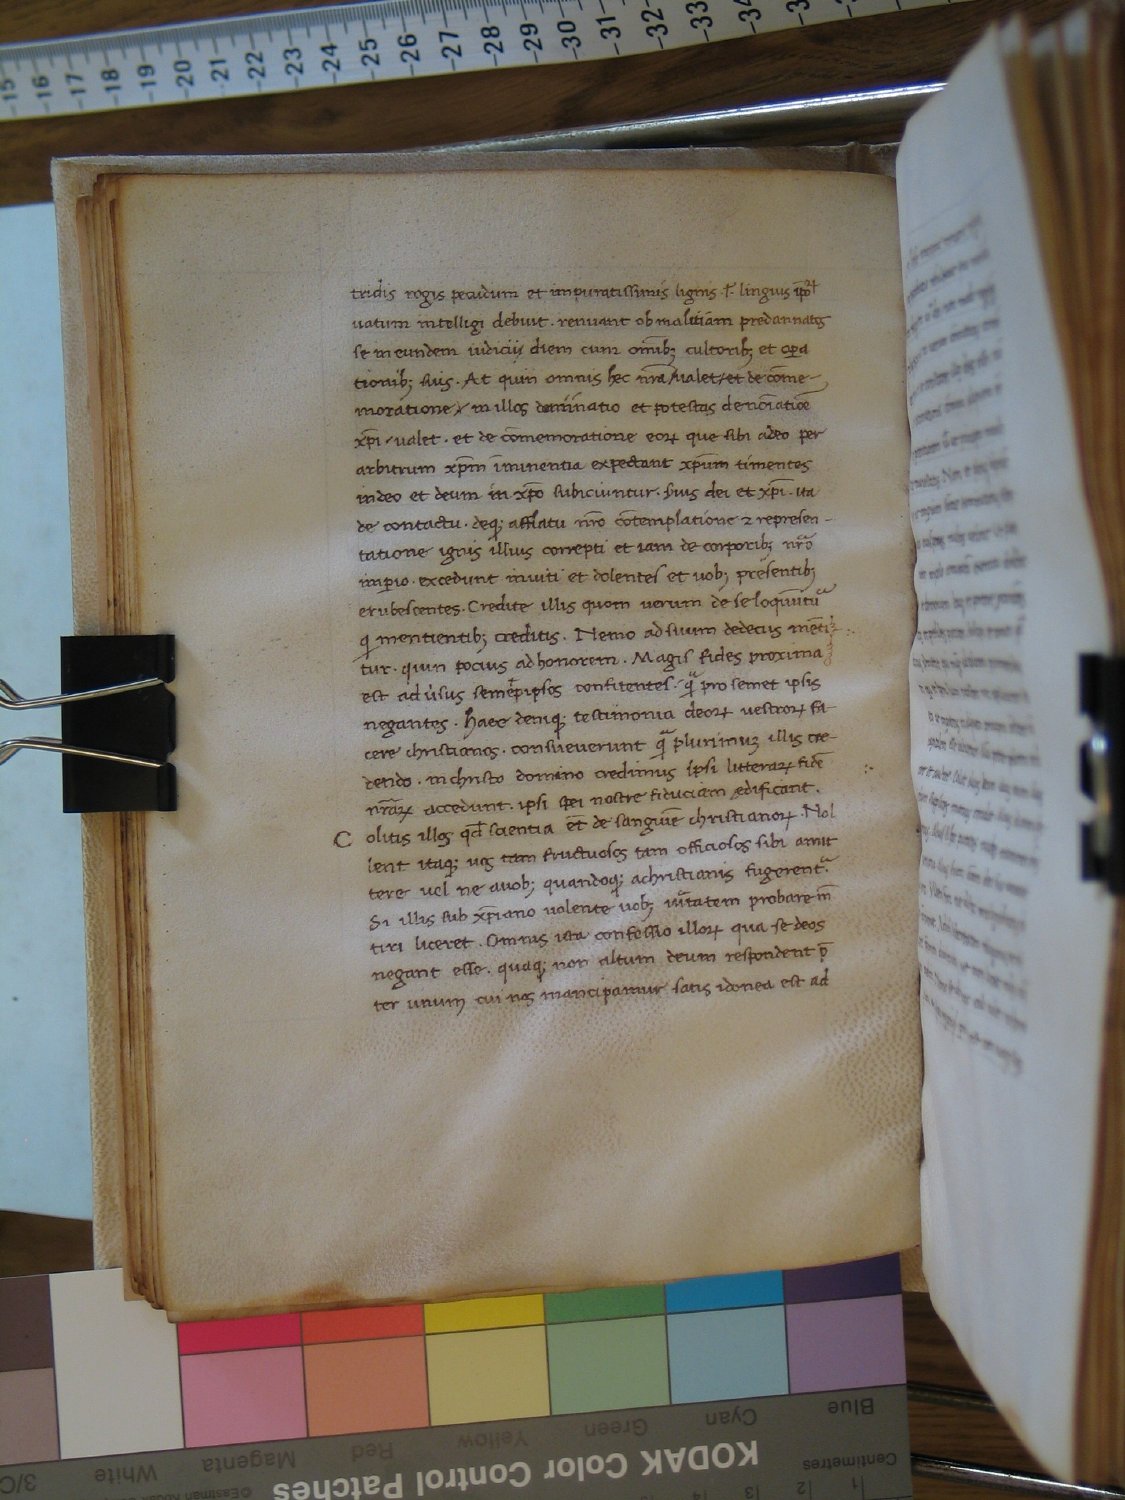 -15 -16 -17 -18 -19 -20 -21 -22 -23 -24 -25 -26 -27 -28 -29 -30 -31 -32 -33 -34
tridis rogis pecudum et impuratissimis lignis .ł. linguis
uatum intelligi debuit . renuant ob malitiam predannatos
se in eundem iudicij diem cum om̅ibꝫ cultoribꝫ et oꝑa
tionibꝫ suis . At quin omnis hec nr̅a / ualet / et de co̅me-
moratione / in illos dominatio et potestas de no̅iatio̅e
xp̅i / ualet . et de co̅memoratione eoꝝ que sibi adeo per
arbitrum xp̅m i̅minentia expectant xp̅um timentes
in deo et deum in xp̅o subiciuntur . suis dei et xp̅i . ita
de contactu . deqꝫ afflatu nr̅o co̅templatione ⁊ represen-
tatione ignis illius correpti et iam de corporibꝫ nr̅o
imp̲io . excedunt inuiti et dolentes et uobꝫ prese̅ntibꝫ
erubescentes . Credite illis quom uerum de se loqu̅ntu᷑
q mentientibꝫ creditis . Nemo ad suum dedecus me̅ti
tur . quin pocius ad honorem . Magis fides proxima
est aduersus semetipsos confitentes . q̅ pro semet ipsis
negantes . Haec deniqꝫ testimonia deoꝝ uestroꝝ fa-
cere christianos . consueuerunt q̅ plurimuꝫ illis cre-
dendo . in christo domino credimus ipsi litteraꝝ fide̅
nr̅aꝝ accedunt . ipsi spei nostre fiduciam ędificant .
C olitis illos qd̅ scientia et̅ de sangui̅e christianoꝝ . Nol
lent itaqꝫ uos tam fructuosos tam officiosos sibi amit
tere uel ne auobꝫ quandoqꝫ achristianis fugerent᷑ .
Si illis sub xp̅iano uolente uobꝫ ue̅ritatem probare m̅
tiri liceret . Omnis ista confessio illoꝝ qua se deos
negant esse . quaqꝫ non altum deum respondent p̅
ter unum cui nos mancipamur satis idonea est ad
KODAK Color Control Patches
Blue
Cyan
Green
Yellow
Red
Magenta
White
3/C
Centimetres